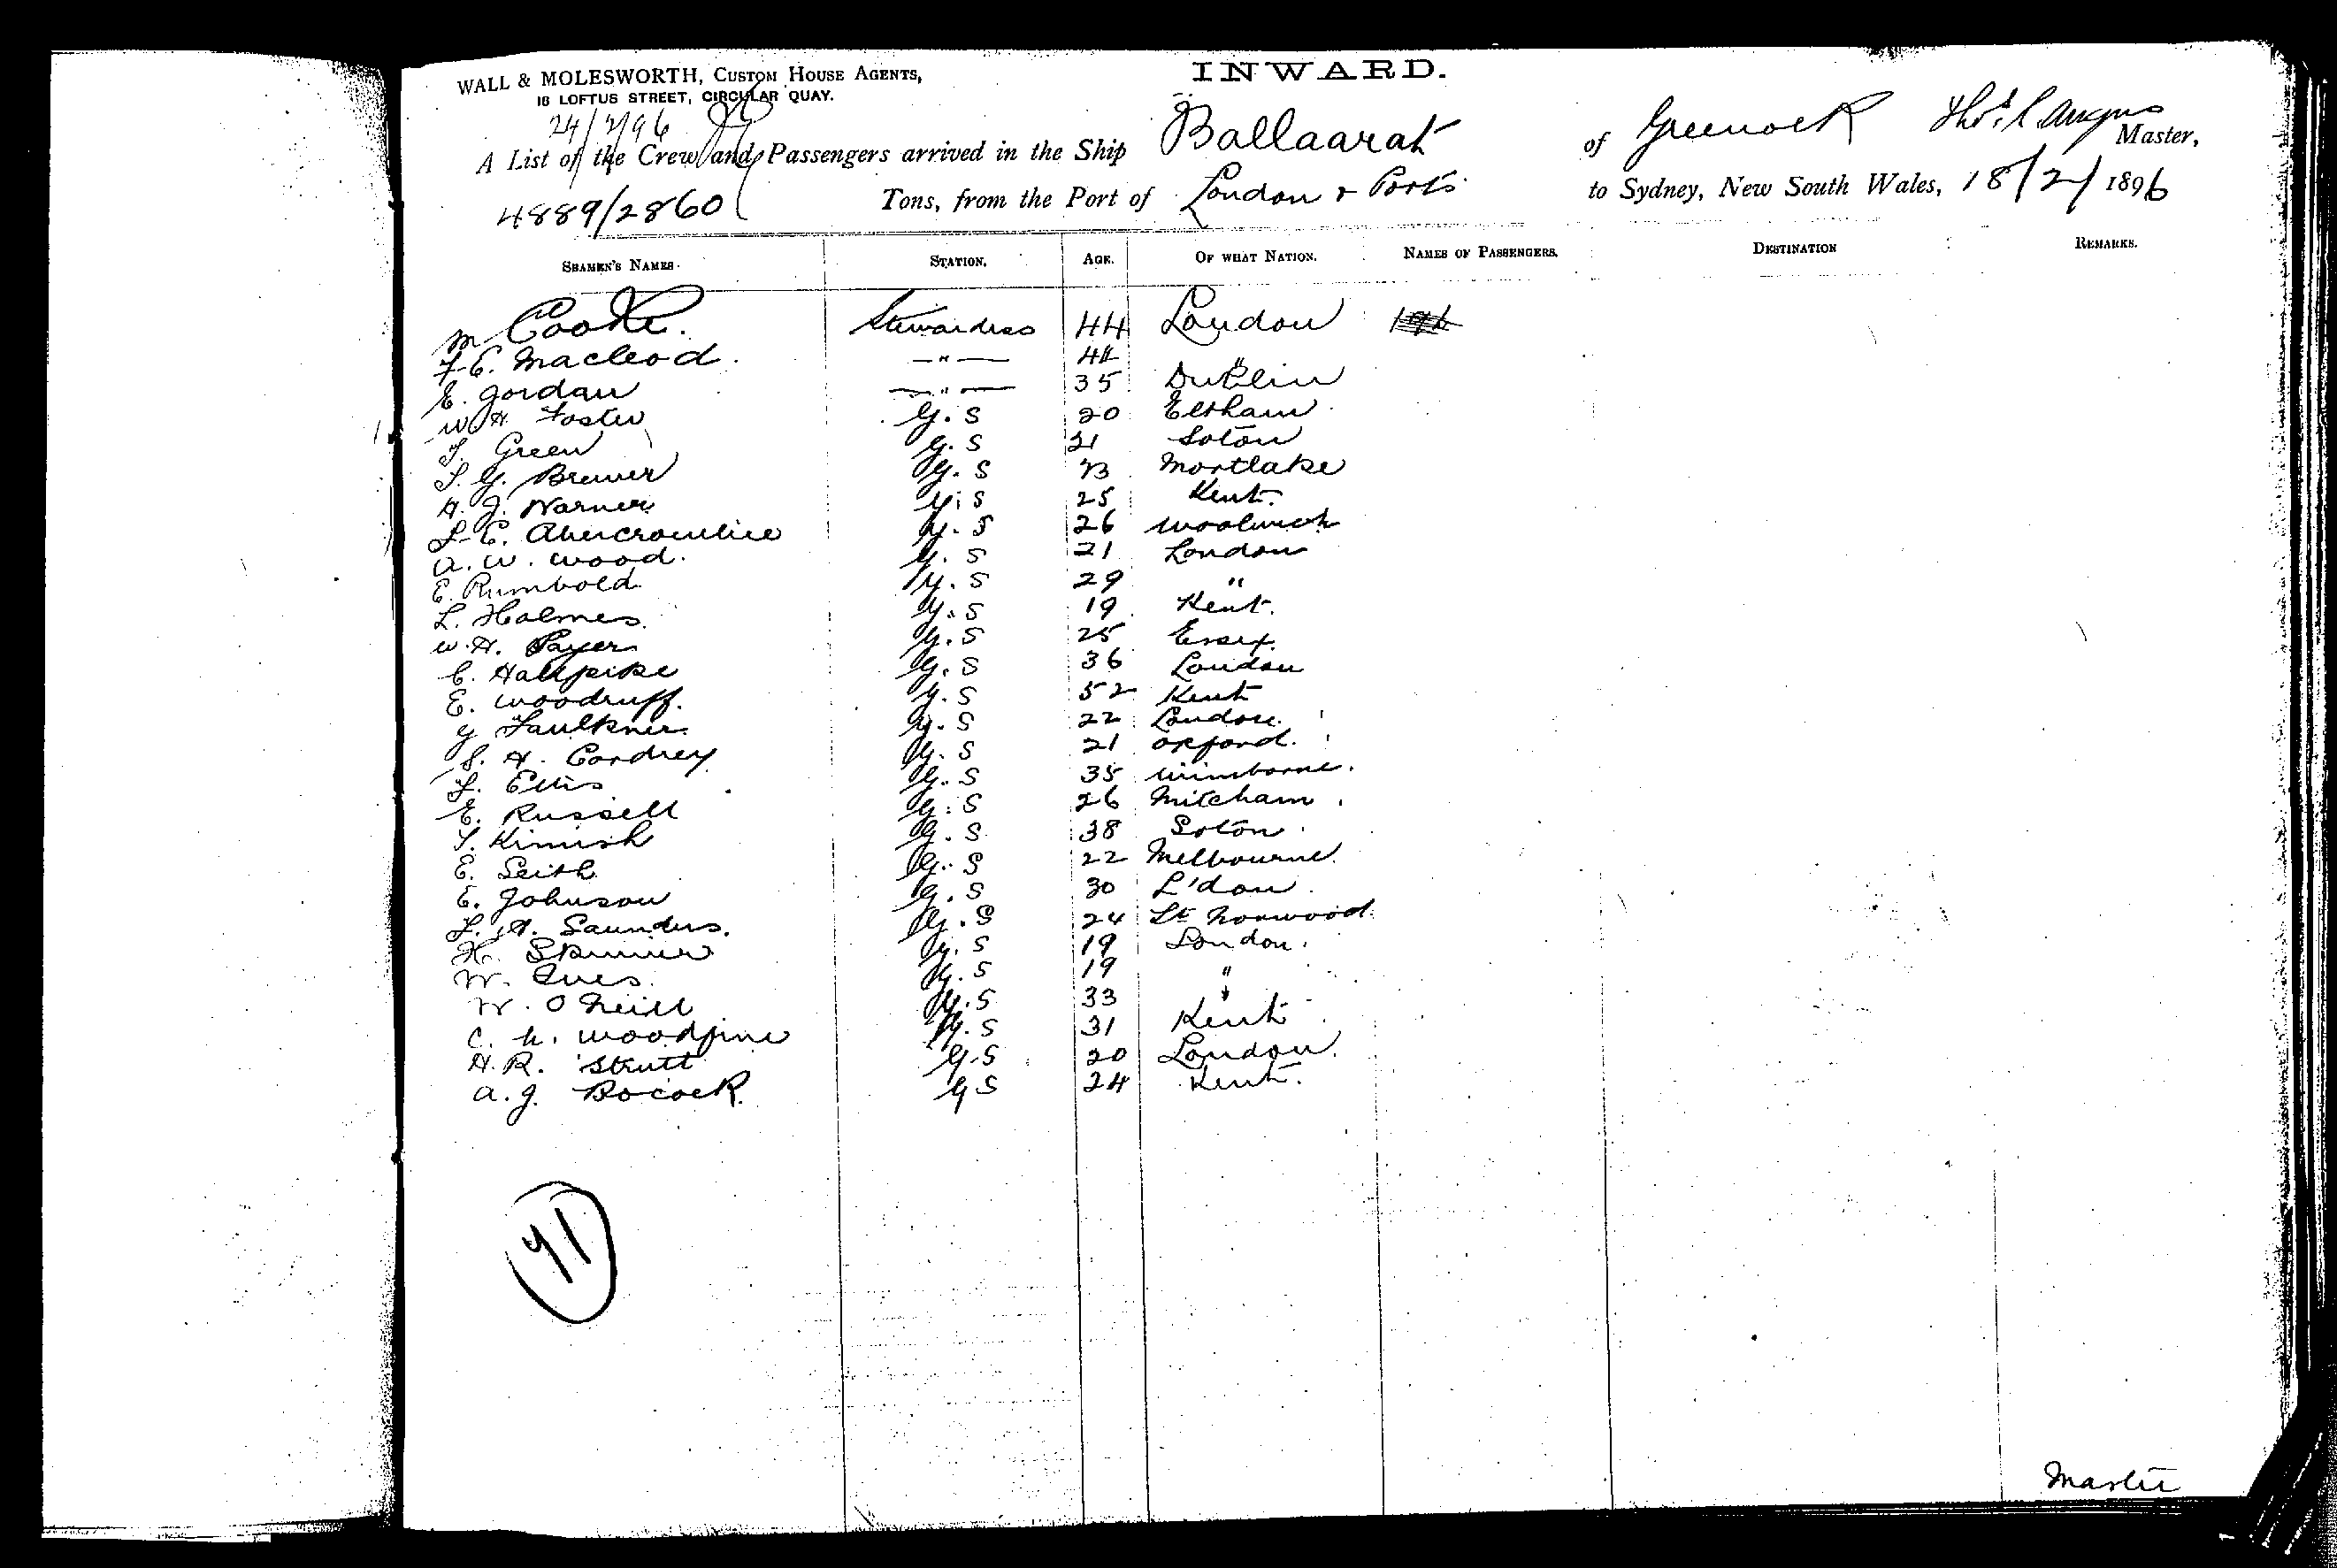 WALL & MOLESWORTH, CUSTOM HOUSE AGENTS,
18 LOFTUS STREET, CIRCULAR QUAY.
INWARD.
24/2/96
A List of the Crew and Passengers arrived in the Ship Ballaarat of Greenock Thos. S. Angus Master,
4889/2860 Tons, from the Port of London & Ports to Sydney, New South Wales, 18/2/1896
SEAMEN'S NAMES. STATION. AGE. OF WHAT NATION. NAMES OF PASSENGERS. DESTINATION REMARKS.
M Cooke. Stewardess 44 London
F. E. Macleod. —"— 42 "
E. Jordan —"— 35 Dublin
W H Foster G. S 20 Eltham
T. Green G. S 21 Soton
S. G. Brewer G. S 23 Mortlake
H. J. Warner G. S 25 Kent.
L. E. Abercrombie G. S 26 Woolwich
A. W. Wood. G. S 21 London
E. Rumbold G. S 29 "
L. Holmes. G. S 19 Kent.
W. H. Payer G. S 25 Essex.
C. Halfpike G. S 36 London
E. Woodruff. G. S 52 Kent
G Faulkner G. S 22 London.
S. H. Cordrey G. S 21 Oxford.
F. Ellis G. S 35 Wimborne.
E. Russell G. S 26 Mitcham.
T. Kimish G. S 38 Soton
E. Seith G. S 22 Melbourne.
E. Johnson G. S 30 L'don.
F. H. Saunders. G. S 24 Lr Norwood
H. Skinner G. S 19 London.
W. Ives. G. S 19 "
W. O Neill G. S 33 "
C. W. Woodfine G. S 31 Kent
H. R. Strutt G. S 20 London.
A. J. Bocock. G S 24 Kent.
41
Master